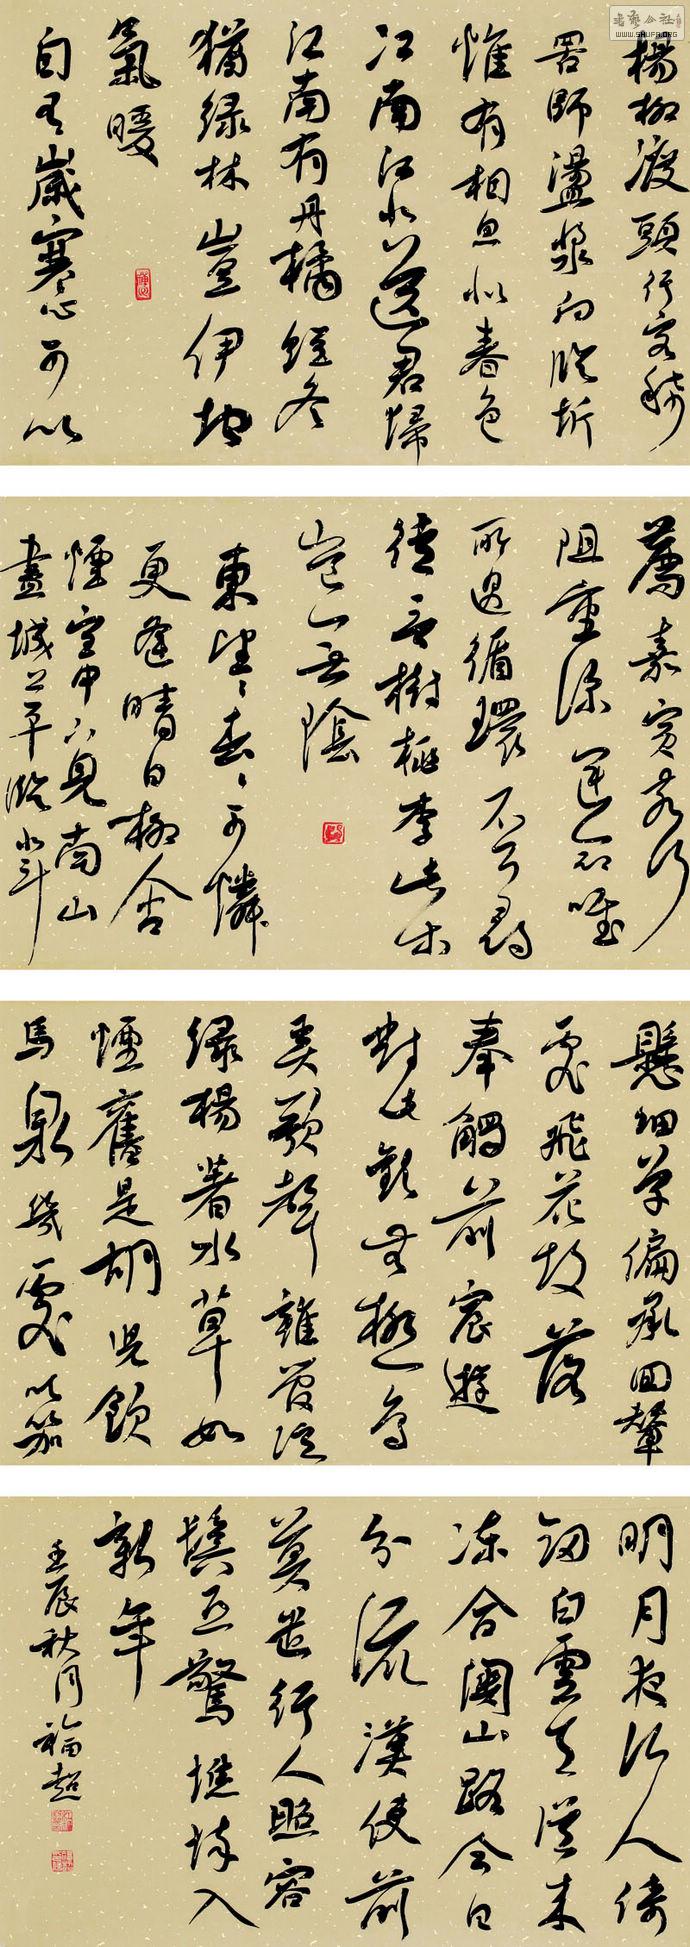 书艺公社
WWW.SHUFA.ORG
楊柳渡頭行客稀
罟師盪槳向臨圻
惟有相思似春色
江南江北送君歸
江南有丹橘經冬
猶綠林豈伊地
氣暖
自有歲寒心可以
薦嘉賓奈何
阻重深運命唯
所遇循環不可尋
徒言樹桃李此木
豈無陰
東望望春春可憐
更逢晴日柳含
煙宮中下見南山
盡城上平臨北斗
懸細草偏承回輦
處飛花故落
奉觴前宸遊
對此歡無極鳥
哢歌聲雜管絃
綠楊著水草如
煙舊是胡兒飲
馬泉幾處吹笳
明月夜何人倚
劍白雲天從來
凍合關山路今日
分流漢使前
莫遣行人照容
鬢恐驚憔悴入
新年
壬辰秋月福超